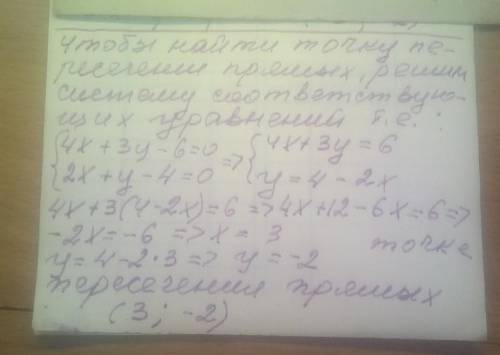 чтобы найти точку пе-
ресечения прямых, решим
систему соответствую-
щих уравнений т.е.:
{4x+3y-6=0 => {4x+3y=6
{2x+y-4=0 {y=4-2x
4x+3(4-2x)=6 => 4x+12-6x=6 =>
-2x=-6 => x=3 точка
y=4-2·3 => y=-2
пересечения прямых
(3; -2)